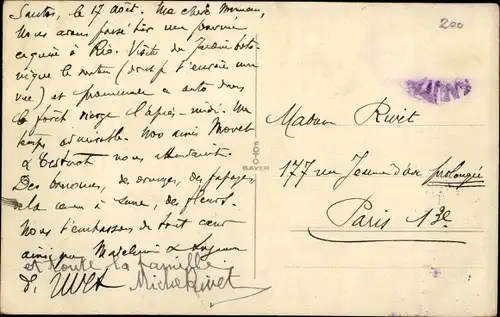 Santos, le 17 août. Ma chère maman,
Nous avons passé hier une journée
exquise à Rio. Visite du Jardin bota-
nique le matin (dont je t'envoie une
vue) et promenade en auto dans
la forêt vierge l'après-midi. Un
temps admirable. Nos amis Movet
& nous attendaient.
Des bananes, des oranges, des papayes,
des fleurs.
Nous t'embrassons de tout cœur
ainsi que Madeleine &
et toute la famille
P. Rivet Michel Rivet
200
FOTO
BAYER
Madame Rivet
177 rue Jeanne d'Arc prolongée
Paris 13e